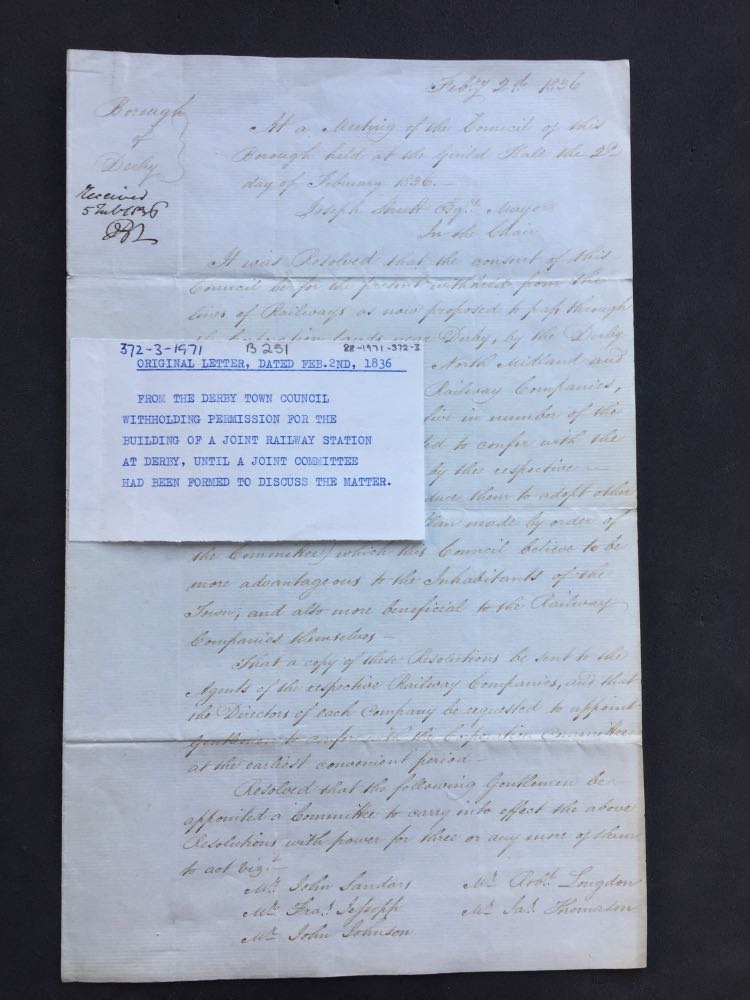 Feby 2d 1836
Borough
of
Derby
Received
5 Feb 1836
At a Meeting of the Council of this
Borough held at the Guild Hall the 2d
day of February 1836.—
Joseph Strutt Esqr. Mayor
In the Chair
It was Resolved that the consent of this
Council be for the present withheld from the
lines of Railways as now proposed to pass through
the lands near Derby, by the Derby
372-3-1971 B 251 88-1971-372-3
ORIGINAL LETTER, DATED FEB.2ND, 1836
FROM THE DERBY TOWN COUNCIL
WITHHOLDING PERMISSION FOR THE
BUILDING OF A JOINT RAILWAY STATION
AT DERBY, UNTIL A JOINT COMMITTEE
HAD BEEN FORMED TO DISCUSS THE MATTER.
North Midland and
Railway Companies,
five in number of the
to confer with the
by the respective —
them to adopt other
Plan made by order of
the Committee) which this Council believe to be
more advantageous to the Inhabitants of the
Town, and also more beneficial to the Railway
Companies themselves —
That a copy of these Resolutions be sent to the
Agents of the respective Railway Companies, and that
the Directors of each Company be requested to appoint
Gentlemen to confer with the Corporation Committee
at the earliest convenient period —
Resolved that the following Gentlemen be
appointed a Committee to carry into effect the above
Resolutions with power for three or any more of them
to act vizt.—
Mr. John Sandars Mr. Robt. Longdon
Mr. Fras. Jessopp Mr. Jas. Thomason
Mr. John Johnson